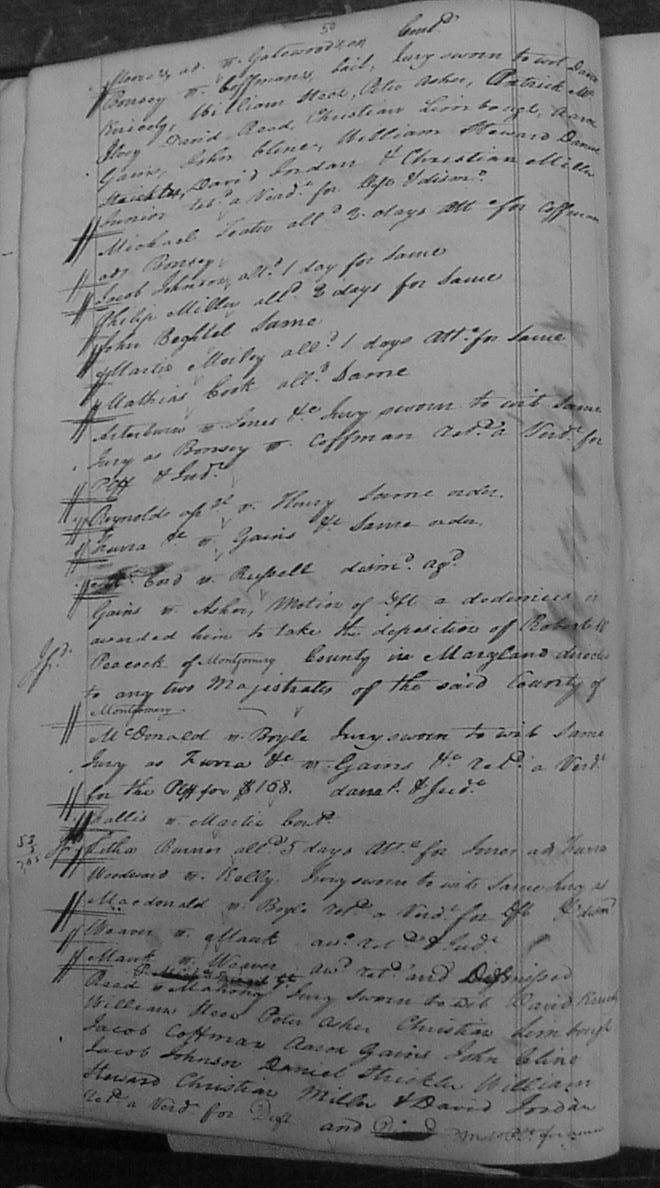 50
Moores, ad. vs. Gatewood &c Cont.d
Bonsey vs. Coffmans, bail, Jury sworn to wit David
Knicely, William Steed, Peter Asher, Patrick Mc
David Read, Christian Limbough, Aaron
Gains, John Cline, William Steward Daniel
Strickler, David Jordan & Christian Miller
Junior ret.d a Verd.t for Deft & dism.d
Michael Teator all.d 2 days Att.e for Coffman
ads Bonsey
Jacob Johnson all.d 1 day for Same
Philip Miller all.d 2 days for Same
John Beghtel Same
Martin all.d 1 days Att.e for Same
Mathias Cook all.d Same
Arterburn vs. Jones &c Jury sworn to wit Same
Jury as Bonsey vs. Coffman ret.d a Verd.t for
Plff & Jud.t
Reynolds vs. Henry Same order.
Zurra &c vs. Gains &c Same order.
Cord vs. Russell dism.d ag.d
Gains vs. Asher, Motion of Dft a dedimus is
awarded him to take the deposition of Robert
Peacock of Montgomery County in Maryland directed
to any two Majistrates of the said County of
Montgomery
McDonald vs. Boyle Jury sworn to wit Same
Jury as Zurra &c vs. Gains &c ret.d a Verd.t
for the Plff for $168. & Jud.t
vs. Martin Cont.d
53
all.d 5 days Att.e for Jones ads Zurra
Woodward vs. Kelly. Jury sworn to wit Same Jury as
Macdonald vs. Boyle ret.d a Verd.t for Dft & dism.d
Weaver vs. Mauk aw.d ret.d & Jud.t
Mauk vs. Weaver aw.d ret.d and Dissmissed
Read vs. Mahony Jury Sworn to wit David
William Steed Peter Asher Christian Limbough
Jacob Coffman Aaron Gains John Cline
Jacob Johnson Daniel Strickler William
Steward Christian Miller & David Jordan
ret.d a Verd.t for Deft and